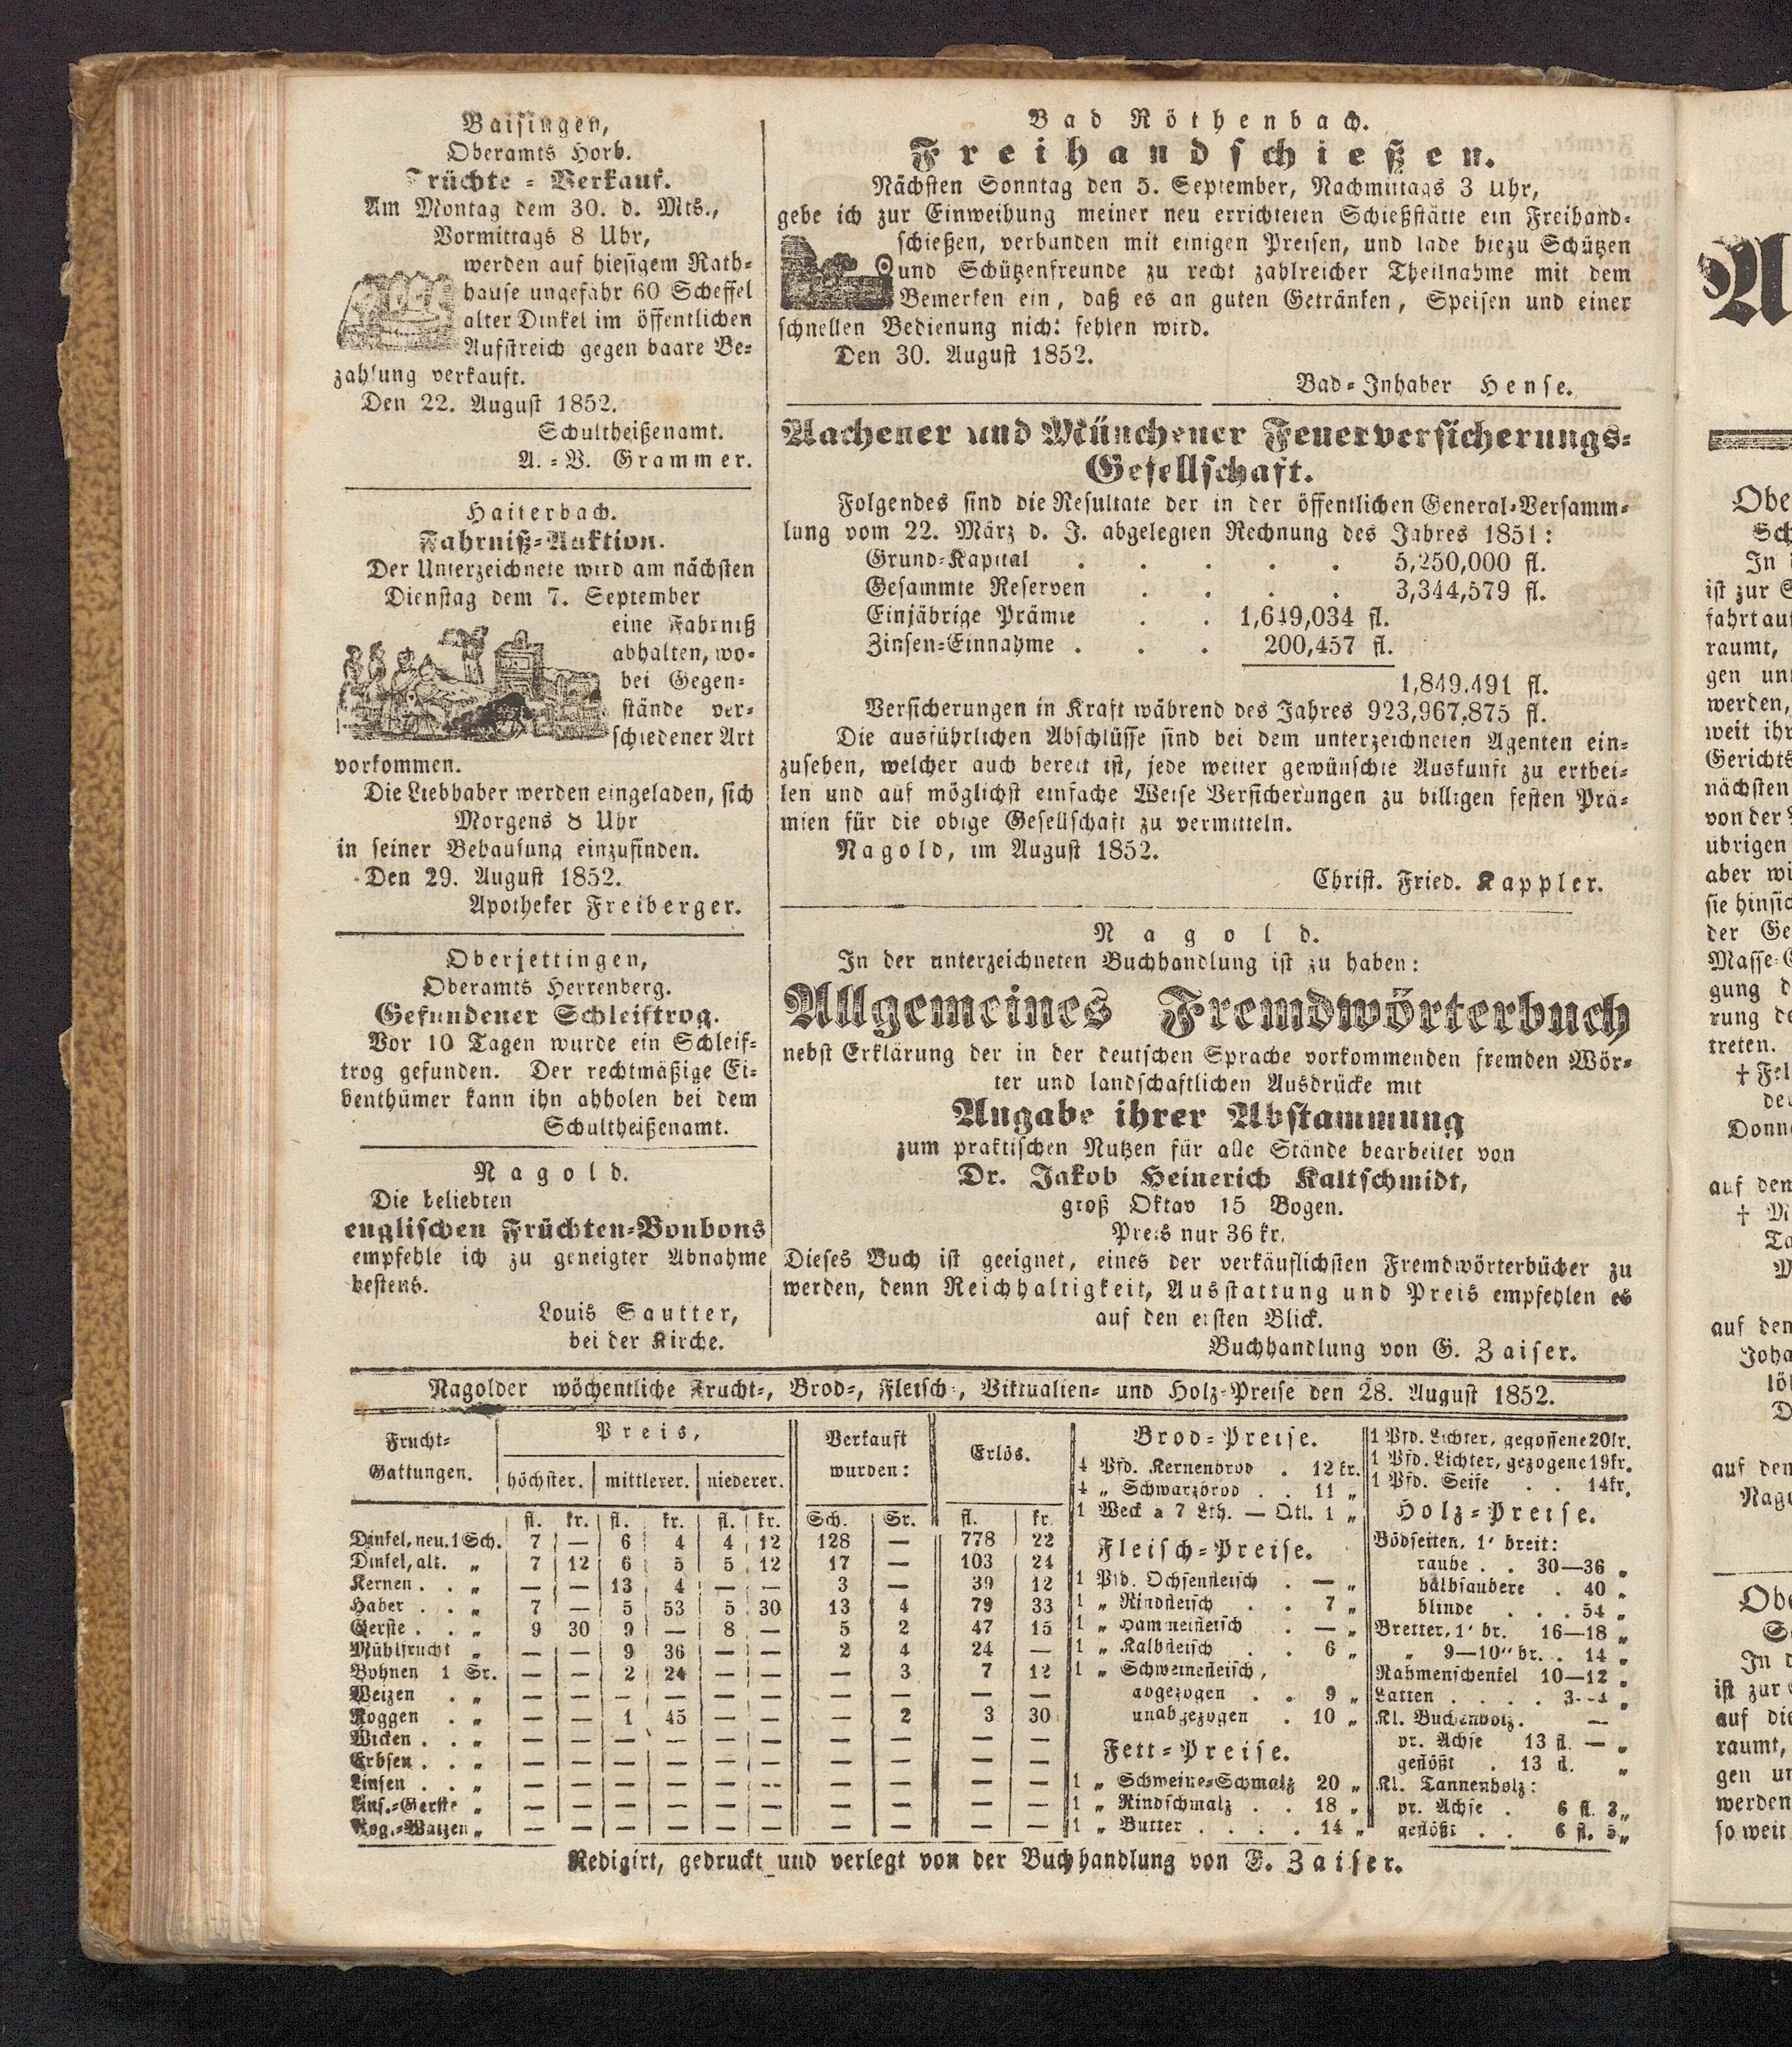 Baisingen,
Oberamts Horb.
Früchte-Verkauf.
Am Montag dem 30. d. Mts.,
Vormittags 8 Uhr,
werden auf hiesigem Rath-
hause ungefähr 60 Scheffel
alter Dinkel im öffentlichen
Aufstreich gegen baare Be-
zahlung verkauft.
Den 22. August 1852.
Schultheißenamt.
A.-V. Grammer.
Haiterbach.
Fahrniß-Auktion.
Der Unterzeichnete wird am nächsten
Dienstag dem 7. September
eine Fahrniß
abhalten, wo-
bei Gegen-
stände ver-
schiedener Art
vorkommen.
Die Liebhaber werden eingeladen, sich
Morgens 8 Uhr
in seiner Behausung einzufinden.
Den 29. August 1852.
Apotheker Freiberger.
Oberjettingen,
Oberamts Herrenberg.
Gefundener Schleiftrog.
Vor 10 Tagen wurde ein Schleif-
trog gefunden. Der rechtmäßige Ei-
benthümer kann ihn abholen bei dem
Schultheißenamt.
Nagold.
Die beliebten
englischen Früchten-Bonbons
empfehle ich zu geneigter Abnahme
bestens.
Louis Sautter,
bei der Kirche.
Bad Röthenbach.
Freihandschießen.
Nächsten Sonntag den 5. September, Nachmittags 3 Uhr,
gebe ich zur Einweihung meiner neu errichteten Schießstätte ein Freihand-
schießen, verbunden mit einigen Preisen, und lade hiezu Schützen
und Schützenfreunde zu recht zahlreicher Theilnahme mit dem
Bemerken ein, daß es an guten Getränken, Speisen und einer
schnellen Bedienung nicht fehlen wird.
Den 30. August 1852.
Bad-Inhaber Hense.
Aachener und Münchener Feuerversicherungs-
Gesellschaft.
Folgendes sind die Resultate der in der öffentlichen General-Versamm-
lung vom 22. März d. J. abgelegten Rechnung des Jahres 1851:
Grund-Kapital . . . . . 5,250,000 fl.
Gesammte Reserven . . . . 3,344,579 fl.
Einjährige Prämie . . 1,649,034 fl.
Zinsen-Einnahme . . . 200,457 fl.
1,849,491 fl.
Versicherungen in Kraft während des Jahres 923,967,875 fl.
Die ausführlichen Abschlüsse sind bei dem unterzeichneten Agenten ein-
zusehen, welcher auch bereit ist, jede weiter gewünschte Auskunft zu erthei-
len und auf möglichst einfache Weise Versicherungen zu billigen festen Prä-
mien für die obige Gesellschaft zu vermitteln.
Nagold, im August 1852.
Christ. Fried. Kappler.
Nagold.
In der unterzeichneten Buchhandlung ist zu haben:
Allgemeines Fremdwörterbuch
nebst Erklärung der in der deutschen Sprache vorkommenden fremden Wör-
ter und landschaftlichen Ausdrücke mit
Angabe ihrer Abstammung
zum praktischen Nutzen für alle Stände bearbeitet von
Dr. Jakob Heinerich Kaltschmidt,
groß Oktav 15 Bogen.
Preis nur 36 kr.
Dieses Buch ist geeignet, eines der verkäuflichsten Fremdwörterbücher zu
werden, denn Reichhaltigkeit, Ausstattung und Preis empfehlen es
auf den ersten Blick.
Buchhandlung von G. Zaiser.
Nagolder wöchentliche Frucht-, Brod-, Fleisch-, Viktualien- und Holz-Preise den 28. August 1852.
Frucht-Gattungen. Preis, Verkauft wurden: Erlös.
höchster. mittlerer. niederer.
fl. kr. fl. kr. fl. kr. Sch. Sr. fl. kr.
Dinkel, neu. 1 Sch. 7 — 6 4 4 12 128 — 778 22
Dinkel, alt. „ 7 12 6 5 5 12 17 — 103 24
Kernen . . „ — — 13 4 — — 3 — 39 12
Haber . . „ 7 — 5 53 5 30 13 4 79 33
Gerste . . „ 9 30 9 — 8 — 5 2 47 15
Mühlfrucht „ — — 9 36 — — 2 4 24 —
Bohnen 1 Sr. — — 2 24 — — — 3 7 12
Weizen . „ — — — — — — — — — —
Roggen . „ — — 1 45 — — — 2 3 30
Wicken . . „ — — — — — — — — — —
Erbsen . . „ — — — — — — — — — —
Linsen . . „ — — — — — — — — — —
Lins.-Gerste „ — — — — — — — — — —
Rog.-Waizen „ — — — — — — — — — —
Brod-Preise.
4 Pfd. Kernenbrod . 12 kr.
4 „ Schwarzbrod . . 11 „
1 Weck a 7 Lth. — Qtl. 1 „
Fleisch-Preise.
1 Pfd. Ochsenfleisch . — „
1 „ Rindfleisch . . 7 „
1 „ Hammelfleisch . — „
1 „ Kalbfleisch . . 6 „
1 „ Schweinefleisch,
abgezogen . . 9 „
unabgezogen . 10 „
Fett-Preise.
1 „ Schweine-Schmalz 20 „
1 „ Rindschmalz . . 18 „
1 „ Butter . . . . 14 „
1 Pfd. Lichter, gegossene 20kr.
1 Pfd. Lichter, gezogene 19kr.
1 Pfd. Seife . . 14kr.
Holz-Preise.
Bödseiten, 1' breit:
rauhe . . 30—36 „
halbsaubere . 40 „
blinde . . . 54 „
Bretter, 1' br. 16—18 „
„ 9—10'' br. . 14 „
Rahmenschenkel 10—12 „
Latten . . . . 3—4 „
Kl. Buchenholz. —
pr. Achse 13 fl. — „
geflößt . 13 fl. „
Kl. Tannenholz:
pr. Achse . 6 fl. 3„
geflößt . . 6 fl. 5„
Redigirt, gedruckt und verlegt von der Buchhandlung von G. Zaiser.
A
Obe
Sch
In
ist zur S
fahrt auf
raumt,
gen un
werden,
weit ihr
Gerichts
nächsten
von der
übrigen
aber wi
sie hinsic
der Ge
Masse-G
gung d
rung de
treten.
† Fel
de
Donn
auf den
† M
Ta
auf den
Joha
lös
D
auf den
Nag
Obe
In d
ist zur
auf die
raumt,
gen un
werden
so weit